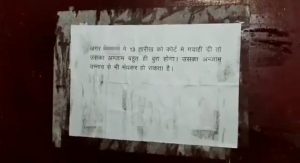 अगर ने 13 तारीख को कोर्ट मे गवाही दी तो
उसका अन्जाम बहुत ही बुरा होगा। उसका अन्जाम
उन्नाव से भी भंयकर हो सकता है।